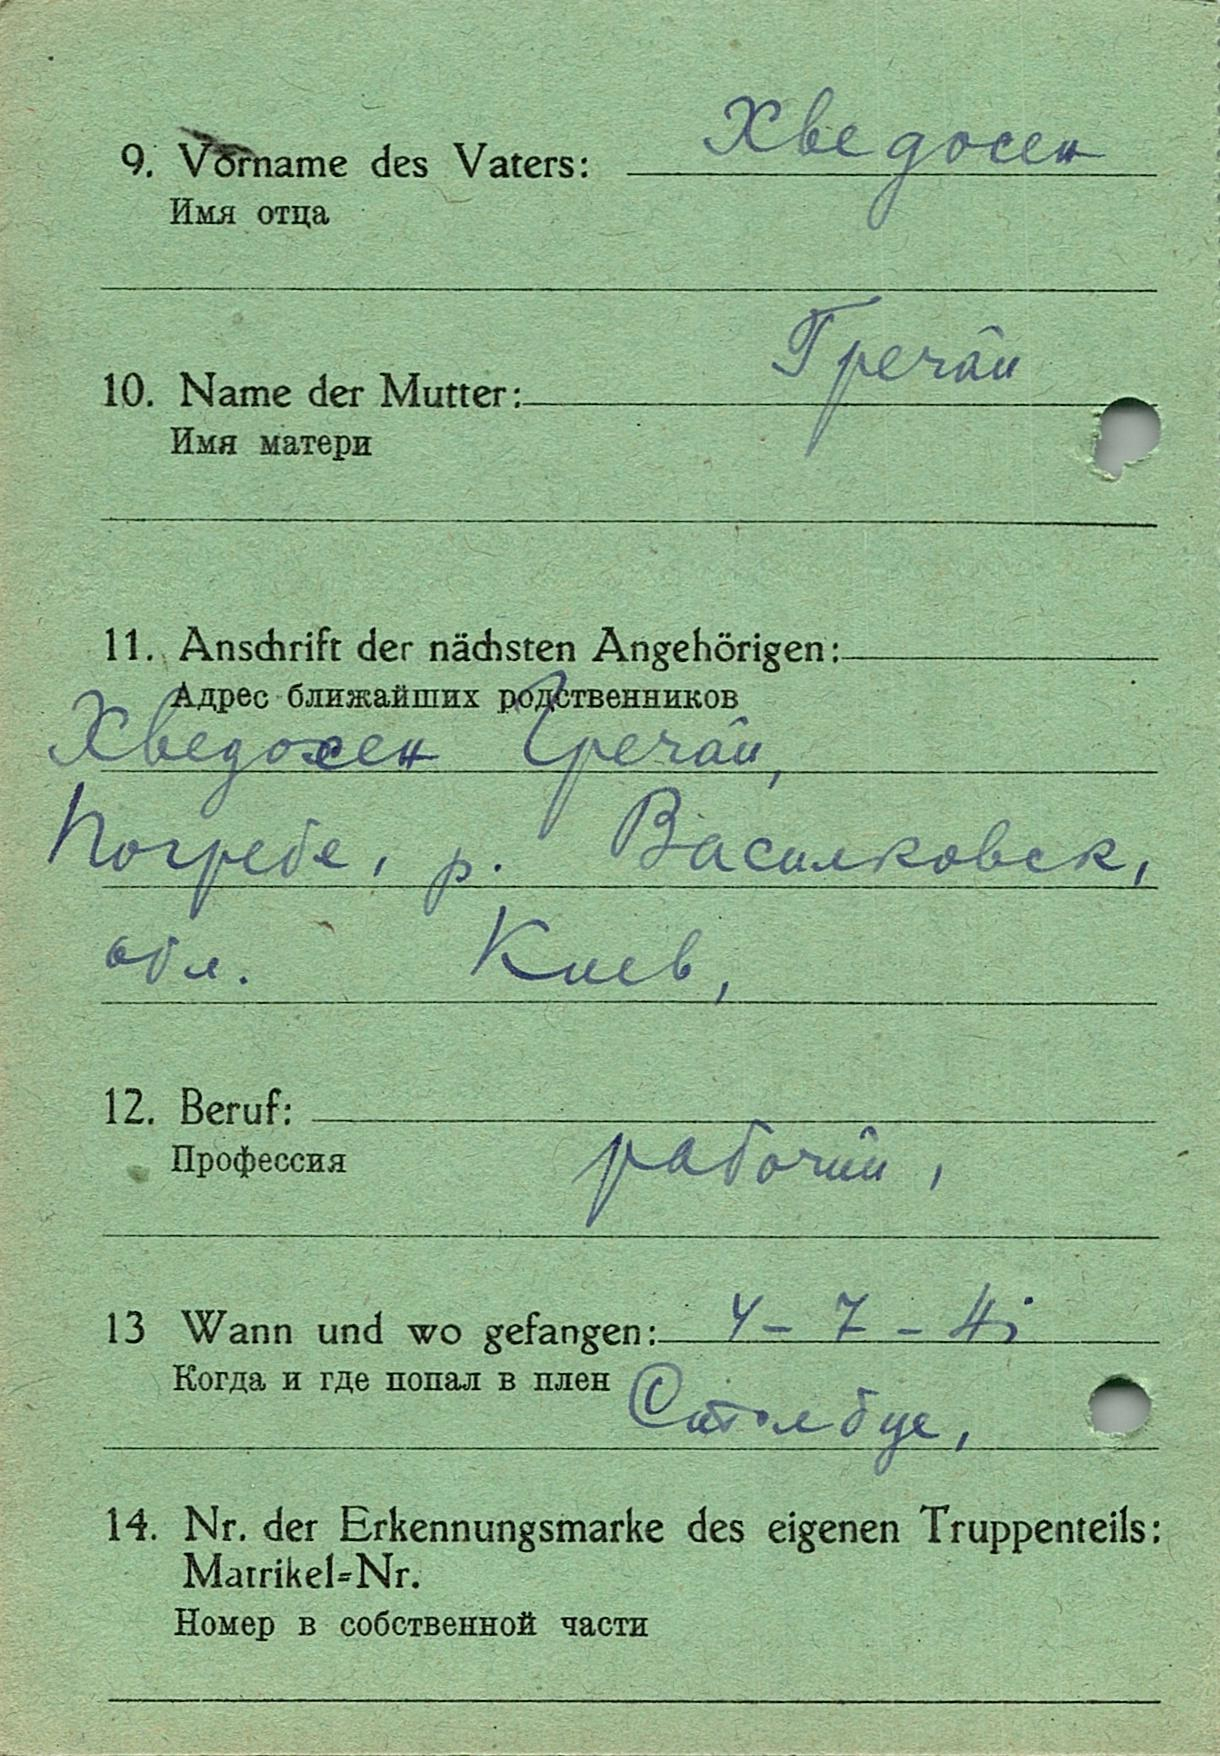 9. Vorname des Vaters: Хведосен
Имя отца
10. Name der Mutter: Гречай
Имя матери
11. Anschrift der nächsten Angehörigen:
Адрес ближайших родственников
Хведосен Гречай,
Погребе, р. Василковск,
обл. Киев,
12. Beruf:
Профессия рабочий,
13 Wann und wo gefangen: 4-7-41
Когда и где попал в плен Столбце,
14. Nr. der Erkennungsmarke des eigenen Truppenteils:
Matrikel=Nr.
Номер в собственной части